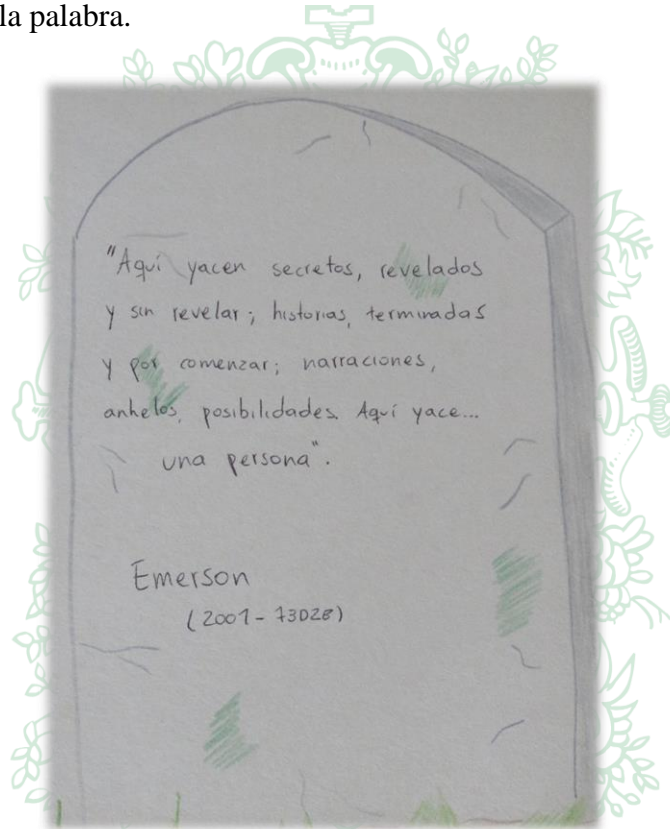 la palabra.
"Aquí yacen secretos, revelados
y sin revelar; historias, terminadas
y por comenzar; narraciones,
anhelos, posibilidades. Aquí yace...
una persona".
Emerson
(2001 -